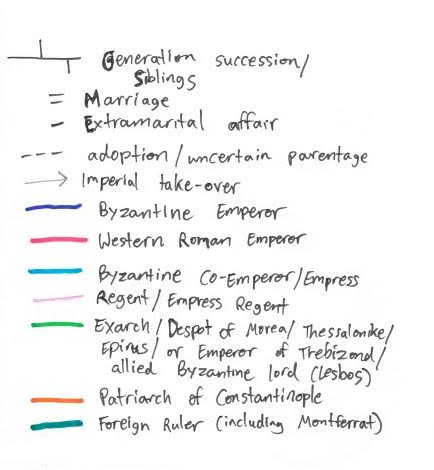 Generation succession/
Siblings
Marriage
Extramarital affair
adoption/uncertain parentage
Imperial take-over
Byzantine Emperor
Western Roman Emperor
Byzantine Co-Emperor/Empress
Regent/Empress Regent
Exarch/Despot of Morea/Thessalonike/
Epirus/or Emperor of Trebizond/
allied Byzantine lord (Lesbos)
Patriarch of Constantinople
Foreign Ruler (including Montferrat)